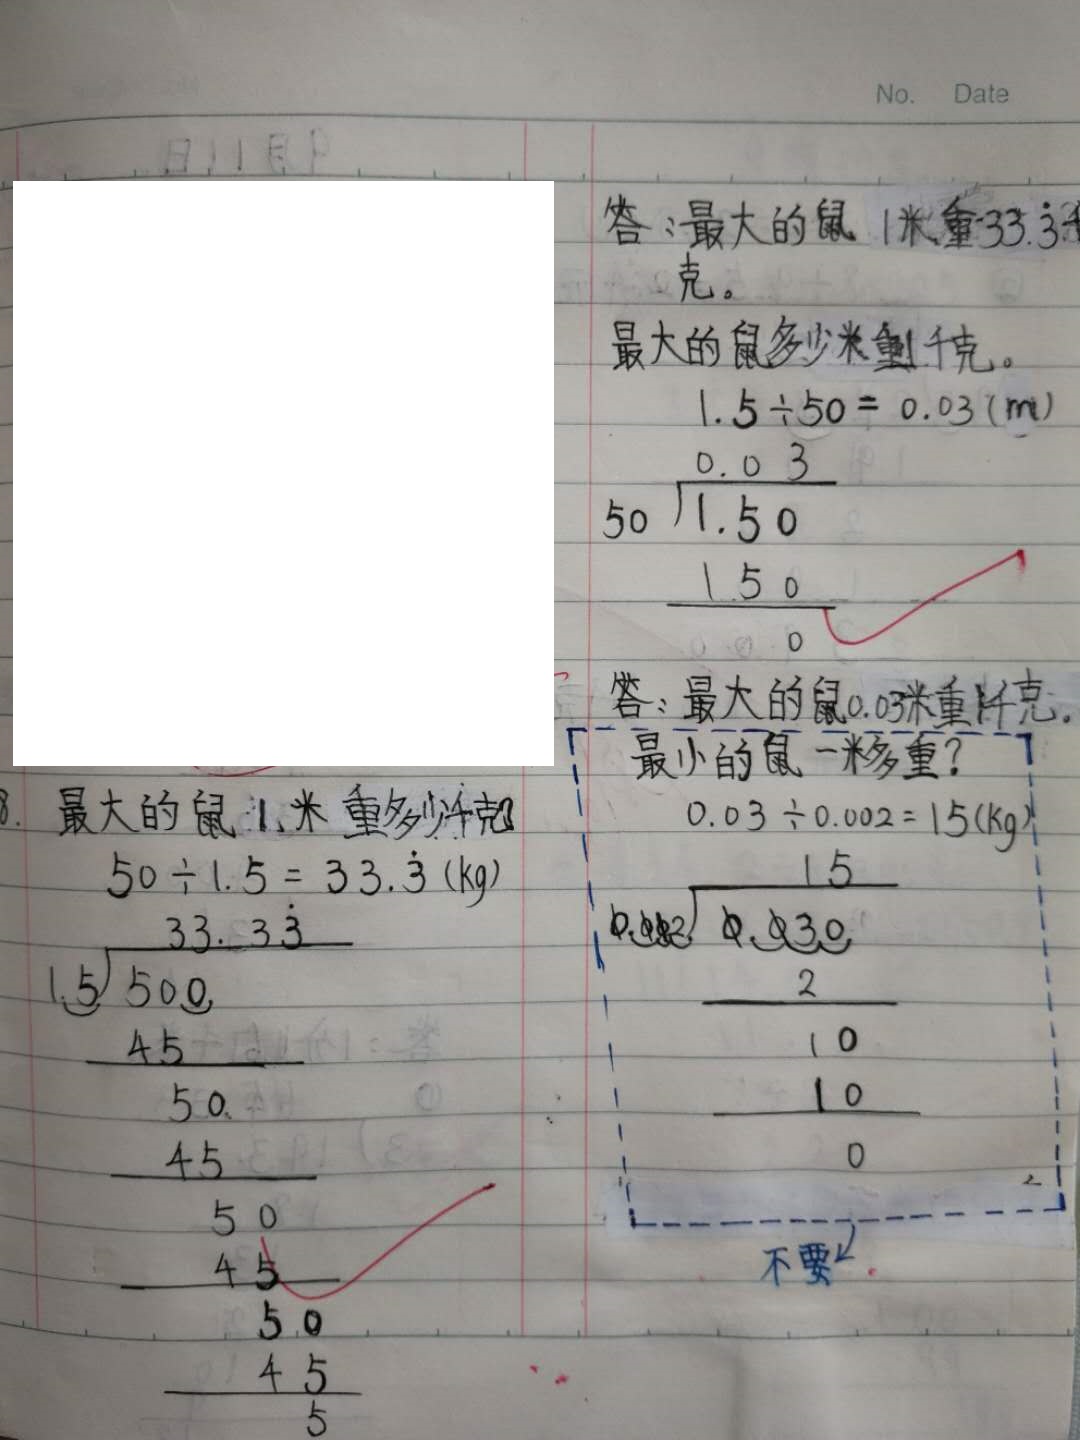 No. Date
8. 最大的鼠1米重多少千克?
50÷1.5=33.3̇(kg)
33.33̇
1.5 500
45
50
45
50
45
50
45
5
答:最大的鼠1米重33.3̇千
克。
最大的鼠多少米重1千克。
1.5÷50=0.03(m)
0.03
50 1.50
150
0
答:最大的鼠0.03米重1千克。
最小的鼠一米多重?
0.03÷0.002=15(kg)
15
0.002 0.030
2
10
10
0
不要